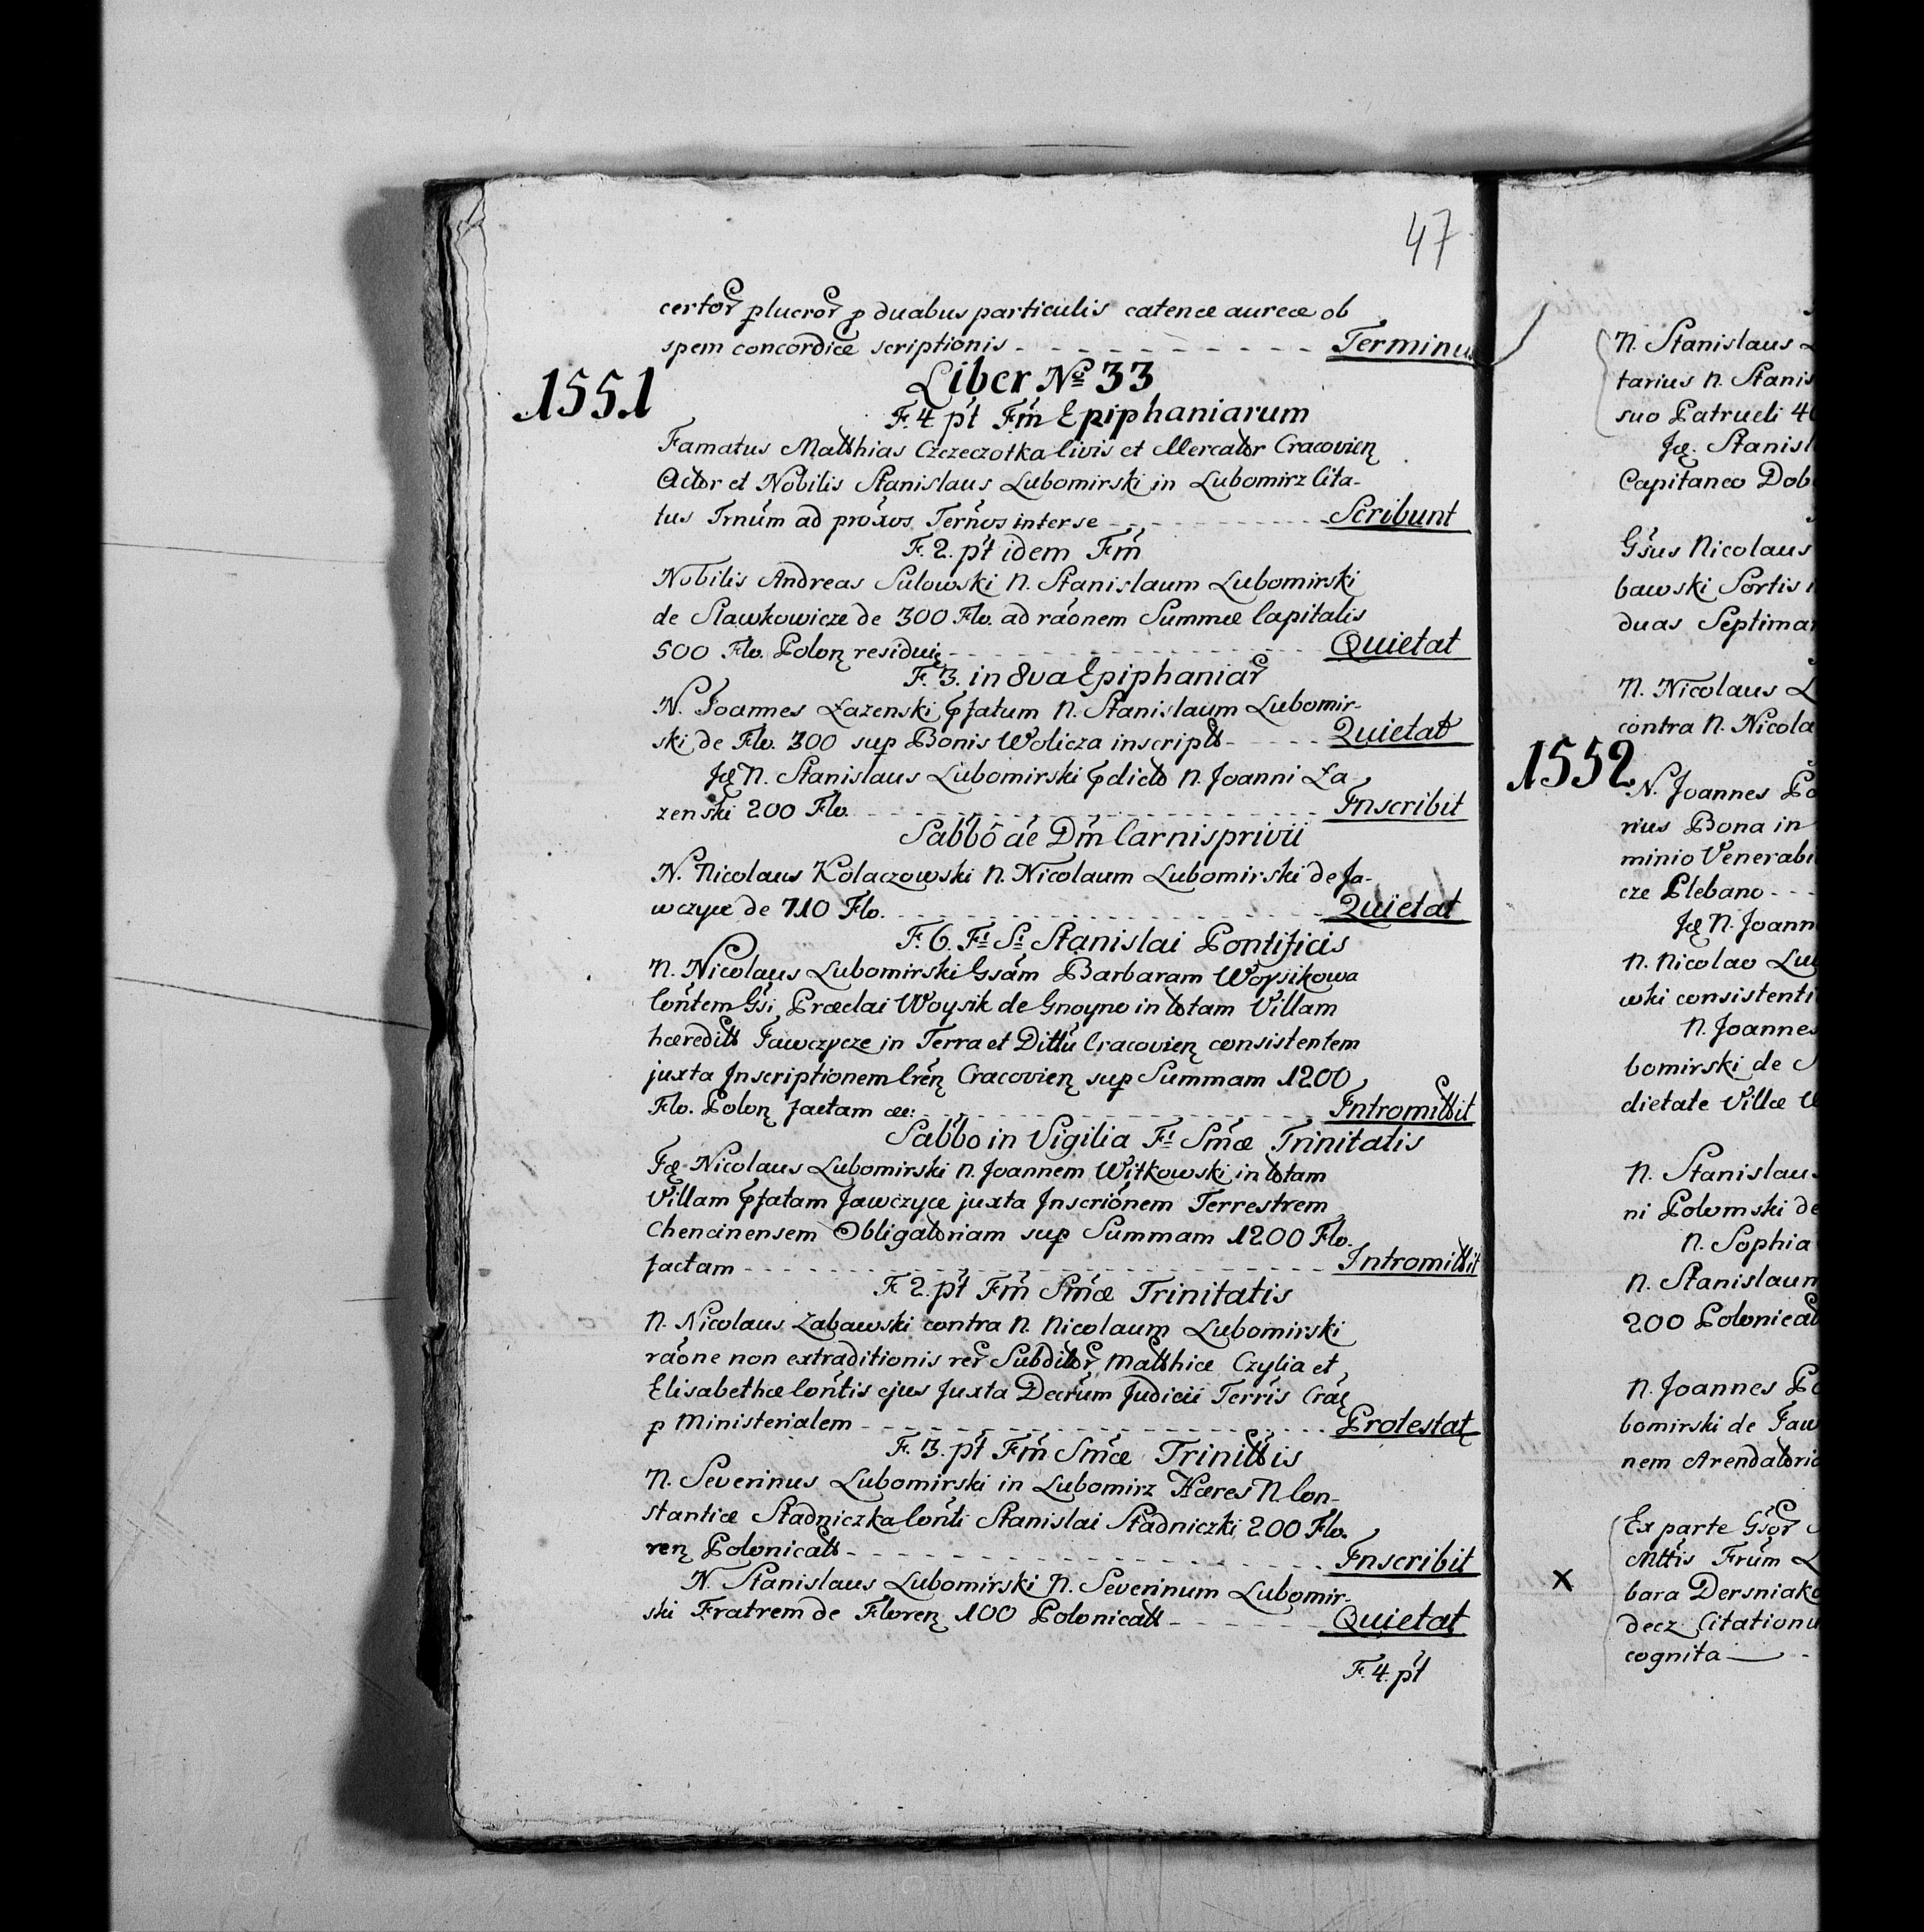 47
certor plucror p duabus particulis catenæ aureæ ob
spem concordiæ scriptionis - - - - - - - - - - - Terminus
1551
Liber No 33
F. 4 pt Fm Epiphaniarum
Famatus Matthias Czeczotka Civis et Mercator Cracovien
Actor et Nobilis Stanislaus Lubomirski in Lubomirz Cita-
tus Trnum ad proxos Ternos inter se - - - - - - - Scribunt
F. 2. pt idem Fm
Nobilis Andreas Sulowski N. Stanislaum Lubomirski
de Slawkowicze de 300 Flo. ad raonem Summæ Capitalis
500 Flo. Polon residuis - - - - - - - - - - - Quietat
F. 3. in 8va Epiphaniar
N. Joannes Łazenski pfatum N. Stanislaum Lubomir-
ski de Flo. 300 sup Bonis Wolicza inscript - - - - - Quietat
Id N. Stanislaus Lubomirski pdicto N. Joanni Ła-
zenski 200 Flo. - - - - - - - - - - - Inscribit
Sabbo ae Dm Carnisprivii
N. Nicolaus Kolaczowski N. Nicolaum Lubomirski de Ja-
wczyce de 710 Flo. - - - - - - - - - - - Quietat
F. 6. Fi Si Stanislai Pontificis
N. Nicolaus Lubomirski Gsam Barbaram Woysikowa
Contem Gsi Præclai Woysik de Gnoyno in totam Villam
hæredit Jawczycze in Terra et Dittu Cracovien consistentem
juxta Inscriptionem Cren Cracovien sup Summam 1200
Flo. Polon factam ae: - - - - - - - - - - - Intromittit
Sabbo in Vigilia Fi Smæ Trinitatis
Id Nicolaus Lubomirski N. Joannem Witkowski in totam
Villam pfatam Jawczyce juxta Inscrionem Terrestrem
Chencinensem Obligatoriam sup Summam 1200 Flo.
factam - - - - - - - - - - - - - Intromittit
F. 2. pt Fm Smæ Trinitatis
N. Nicolaus Zabawski contra N. Nicolaum Lubomirski
raone non extraditionis rer Subditor Matthiæ Czylia et
Elisabethæ Contis ejus Juxta Decrum Judicii Terris Crac
p Ministerialem - - - - - - - - - - - Protestat
F. 3. pt Fm Smæ Trinittis
N. Severinus Lubomirski in Lubomirz Hæres N. Con-
stantiæ Stadniczka Conti Stanislai Stadniczki 200 Flo-
ren Polonicatt - - - - - - - - - - - Inscribit
N. Stanislaus Lubomirski N. Severinum Lubomir-
ski Fratrem de Floren 100 Polonicatt - - - - - - Quietat
F. 4. pt
N. Stanislaus
tarius N. Stanis
suo Patrueli
Id. Stanisl
Capitaneo Dob
Gsus Nicolaus
bawski Sortis
duas Septima
N. Nicolaus
contra N. Nicola
1552
N. Joannes Po
rius Bona in
minio Venerabi
cze Plebano - - -
Id N. Joann
N. Nicolao Lub
wki consistenti
N. Joannes
bomirski de
dietate Villæ
N. Stanislau
ni Polomski de
N. Sophia
N. Stanislaum
200 Polonicat
N. Joannes Po
bomirski de Jaw
nem Arendatoria
Ex parte Gsor
Mttis Frum
x
bara Dersniak
decz Citationu
cognita